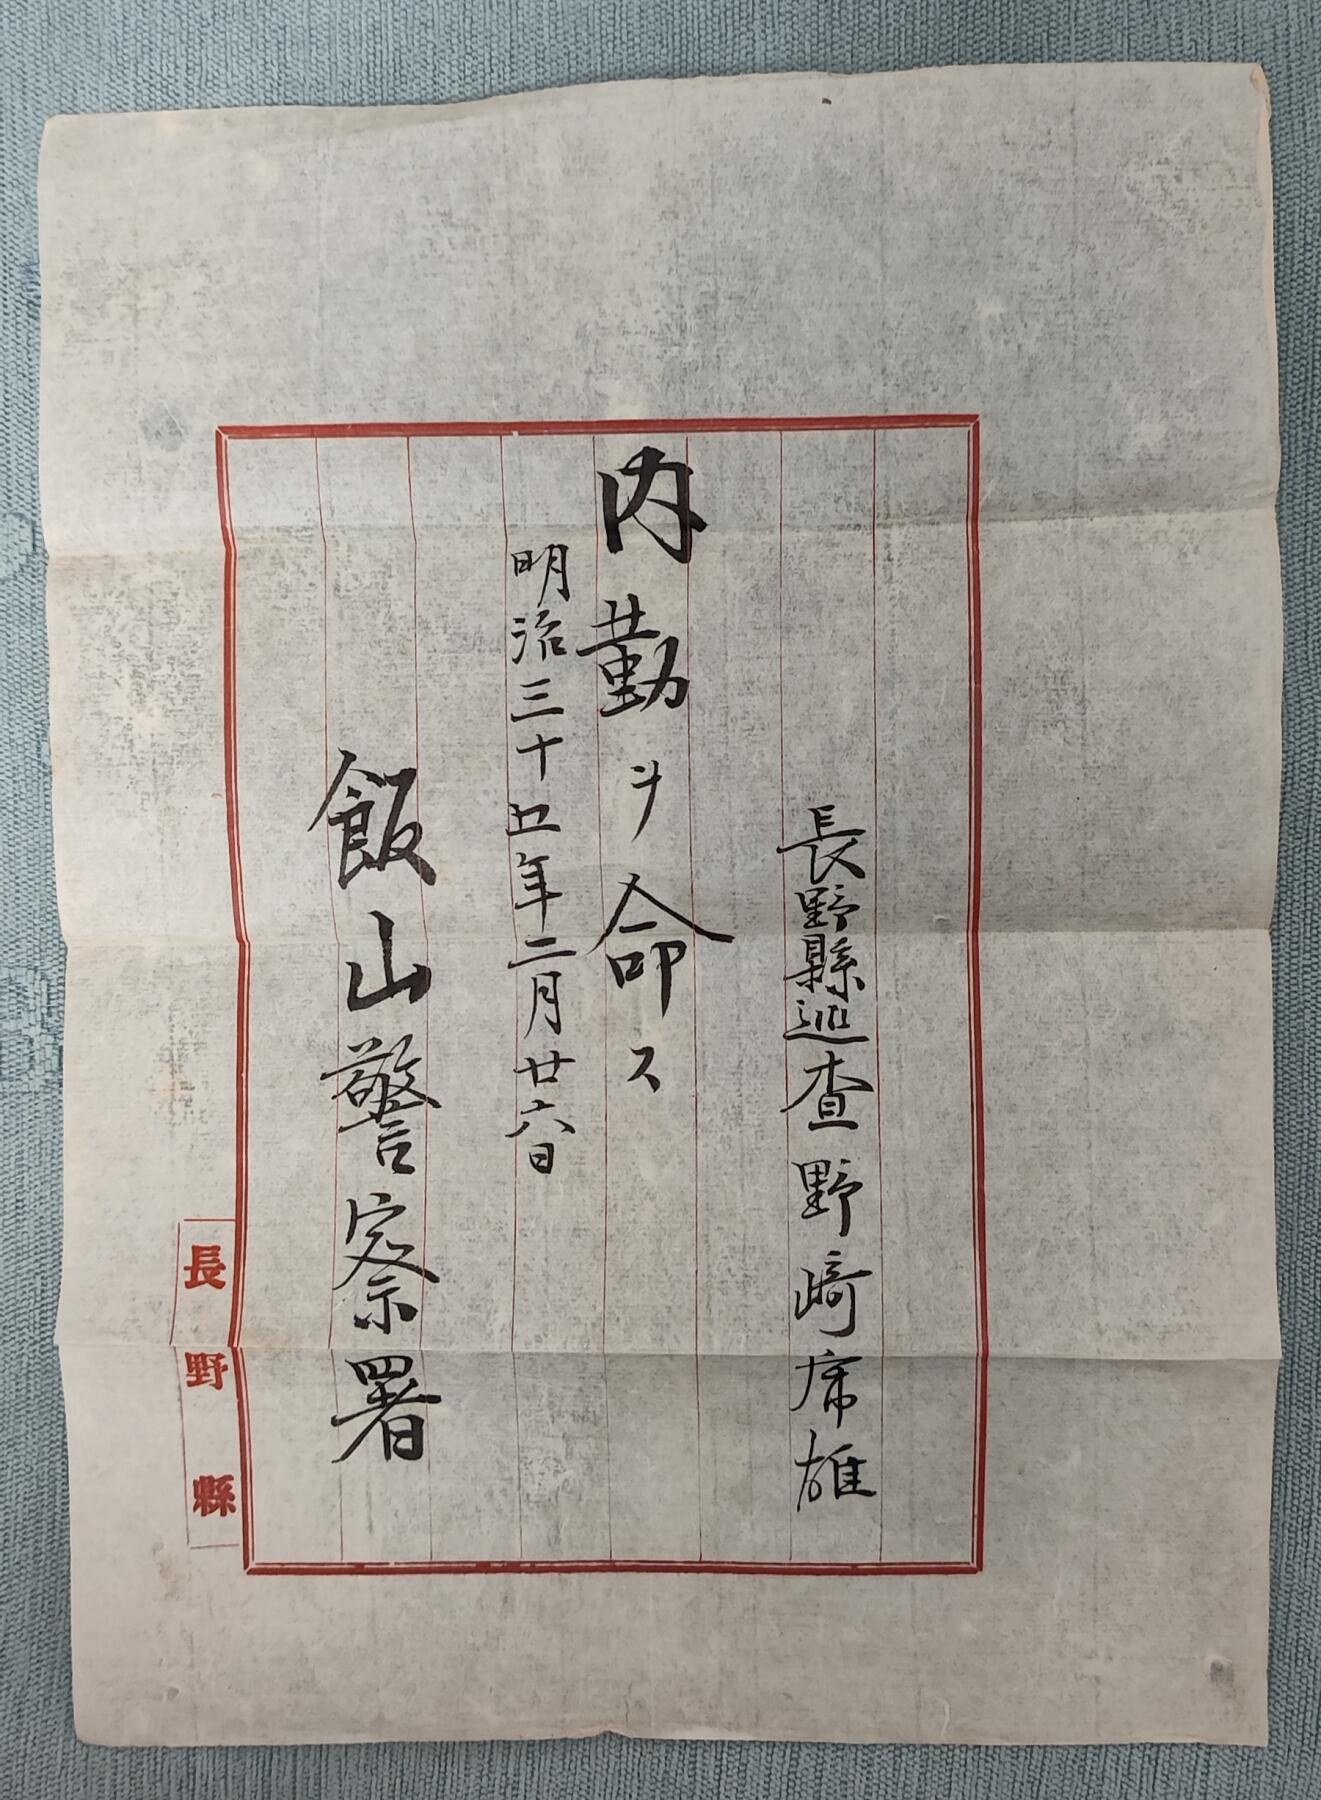 長野縣巡査野﨑席雄
内勤ヲ命ス
明治三十五年二月廿六日
飯山警察署
長野縣